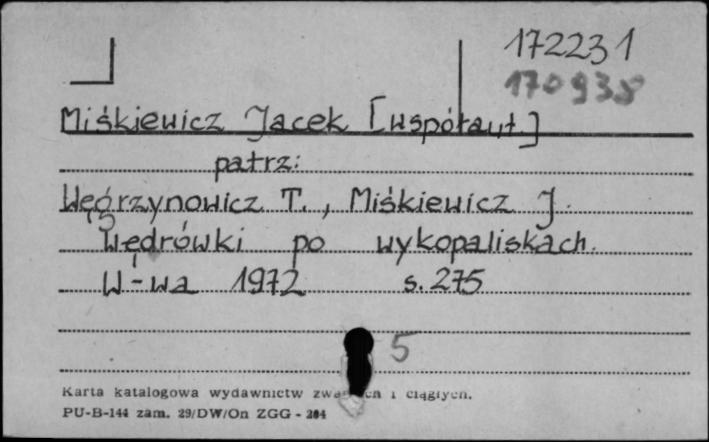 172231
170938
Miśkiewicz Jacek [współaut.]
patrz:
Węgrzynowicz T., Miśkiewicz J.
Wędrówki po wykopaliskach.
W-wa 1972 s. 275
5
Karta katalogowa wydawnictw i ciągłych.
PU-B-144 zam. 29/DW/On ZGG - 204